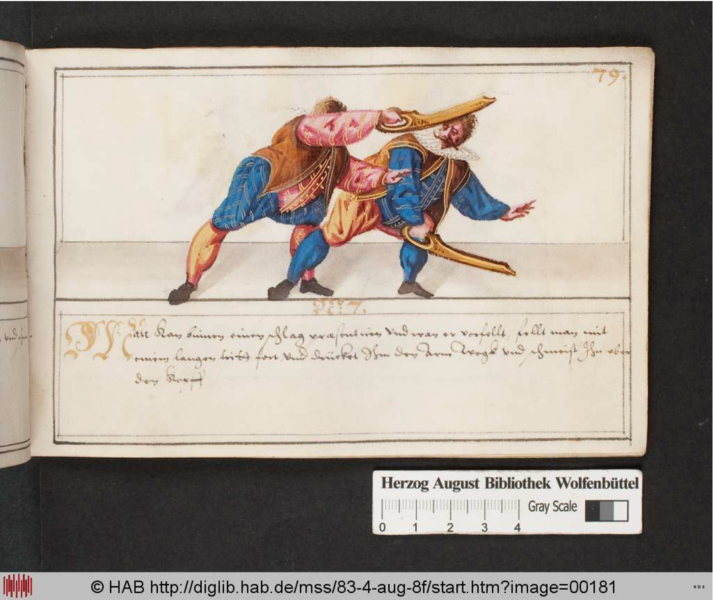 79.
N° 7.
Man kan binnen einen schlag præsentiren und wan er verfellt, fellt man mit
einem langen tritt fort und drücket Ihm den Arm Wegk und schmeist Ihn uber
den Kopff
Herzog August Bibliothek Wolfenbüttel
Gray Scale
0 1 2 3 4
© HAB http://diglib.hab.de/mss/83-4-aug-8f/start.htm?image=00181